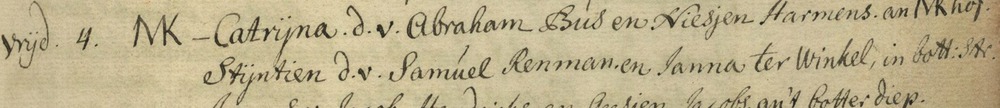 Vrijd. 4. NK – Catrijna. d. v. Abraham Bús en Niesjen Harmens. an NKhof.
Stijntien d. v. Samúel Renman. en Janna ter Winkel, in bott: Str.
Jacobs an't botter diep.